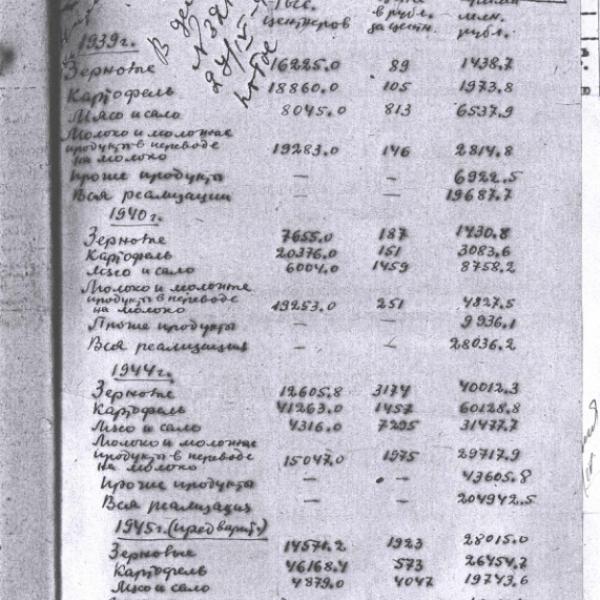 тыс. центнеров в рубл. за центн. млн. рубл.
1939 г.
Зерновые 16225.0 89 1438.7
Картофель 18860.0 105 1973.8
Мясо и сало 8045.0 813 6537.9
Молоко и молочные
продукты в переводе
на молоко 19283.0 146 2814.8
Прочие продукты — — 6922.5
Вся реализация — — 19687.7
1940 г.
Зерновые 7655.0 187 1430.8
Картофель 20376.0 151 3083.6
Мясо и сало 6004.0 1459 8758.2
Молоко и молочные
продукты в переводе
на молоко 19253.0 251 4827.5
Прочие продукты — — 9936.1
Вся реализация — — 28036.2
1944 г.
Зерновые 12605.8 3174 40012.3
Картофель 41263.0 1457 60128.8
Мясо и сало 4316.0 7295 31477.7
Молоко и молочные
продукты в переводе
на молоко 15047.0 1975 29717.9
Прочие продукты — — 43605.8
Вся реализация — — 204942.5
1945 г. (предварит.)
Зерновые 14571.2 1923 28015.0
Картофель 46168.4 573 26454.7
Мясо и сало 4879.0 4047 19743.6